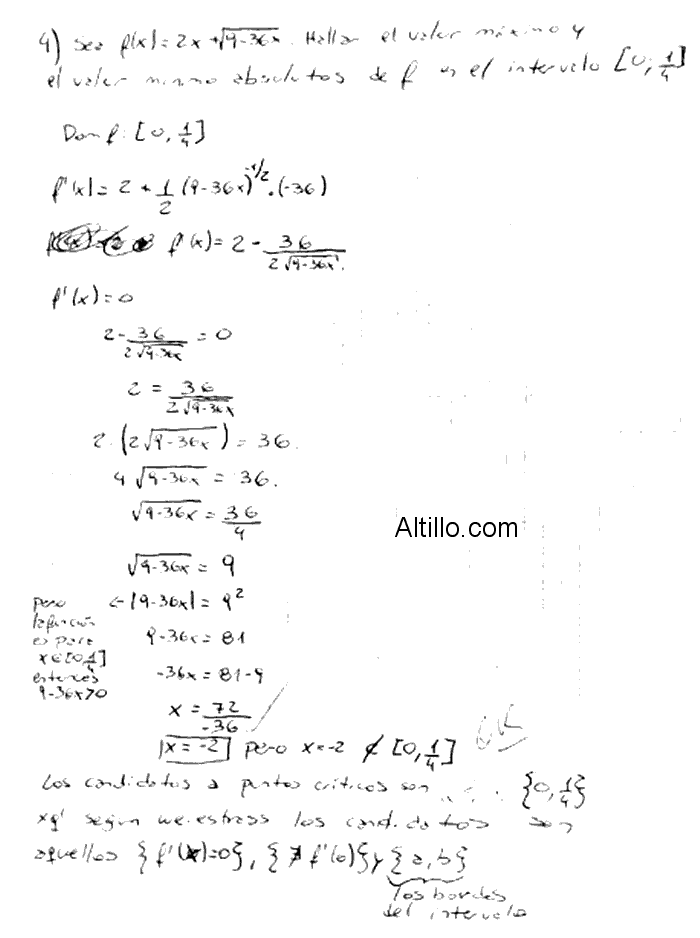 4) Sea f(x) = 2x + √(9-36x). Hallar el valor máximo y
el valor mínmo absolutos de f en el intervalo [0; 1/4]
Dom f: [0, 1/4]
f'(x) = 2 + 1/2 (9-36x)^(-1/2) . (-36)
f'(x) = 2 - 36/(2√(9-36x)).
f'(x) = 0
2 - 36/(2√(9-36x)) = 0
2 = 36/(2√(9-36x))
2 . (2√(9-36x)) = 36.
4 √(9-36x) = 36.
√(9-36x) = 36/4
Altillo.com
√(9-36x) = 9
pero la función es para x ∈ [0, 1/4] entonces 9-36x>0
← |9-36x| = 9²
9-36x = 81
-36x = 81-9
x = 72/-36
x = -2 pero x=-2 ∉ [0, 1/4]
OK
Los candidatos a puntos críticos son {0, 1/4}
xq' según weiestrass los candidatos son
aquellos {f'(x)=0}, {∄ f'(0)} y {a, b}
los bordes
del intervalo